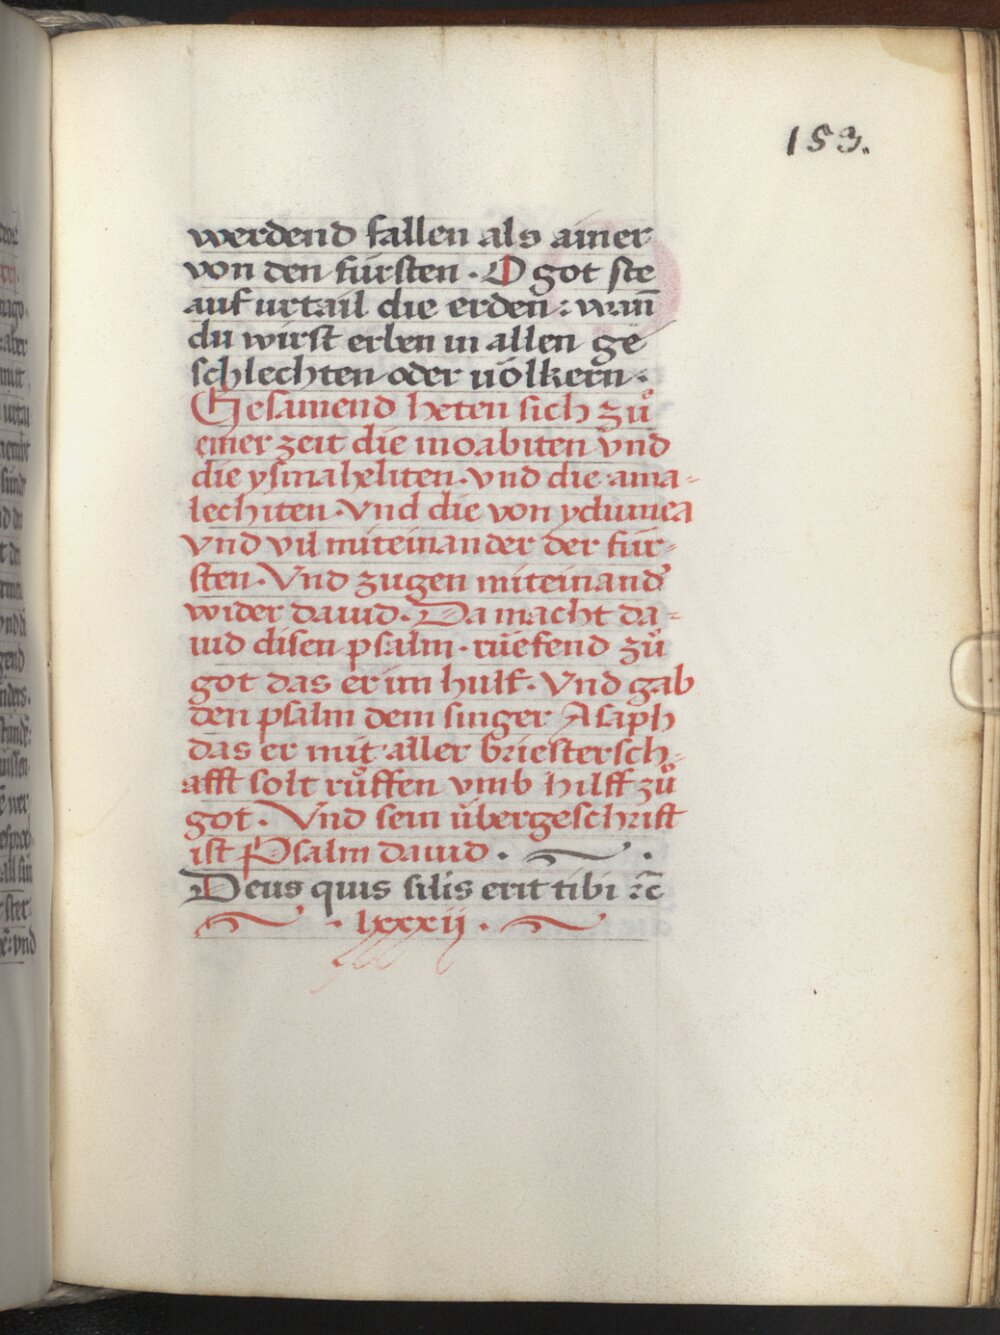 153.
werdend fallen als ainer
von den fürsten · O got ste
auf urtail die erden : wan̄
du wirst erben in allen ge
schlechten oder völkern ·
Gesamend heten sich zů
einer zeit die moabiten vnd
die ysmaheliten · vnd die ama-
lechiten · Vnd die von ydumea
vnd vil miteinander der für-
sten · Vnd zugen miteinand̾
wider dauid · Da macht da-
uid disen psalm · rüefend zů
got das er im hulf · Vnd gab
den psalm dem singer Asaph
das er mit aller briestersch-
afft solt růffen vmb hilff zů
got · Vnd sein übergeschrift
ist Psalm dauid ·
Deus quis silis erit tibi ⁊c̄
· lxxxij ·